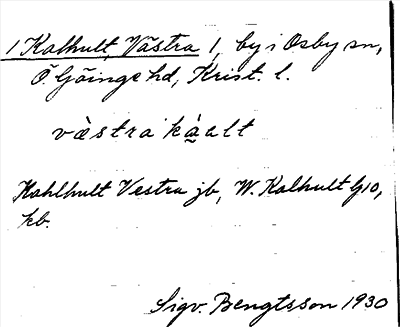 1 Kalhult, Västra 1, by i Osby sn,
Ö. Göinge hd, Krist. l.
vàstra kàalt
Kahlhult Vestra jb, W. Kalhult
kb.
Sigv. Bengtsson 1930